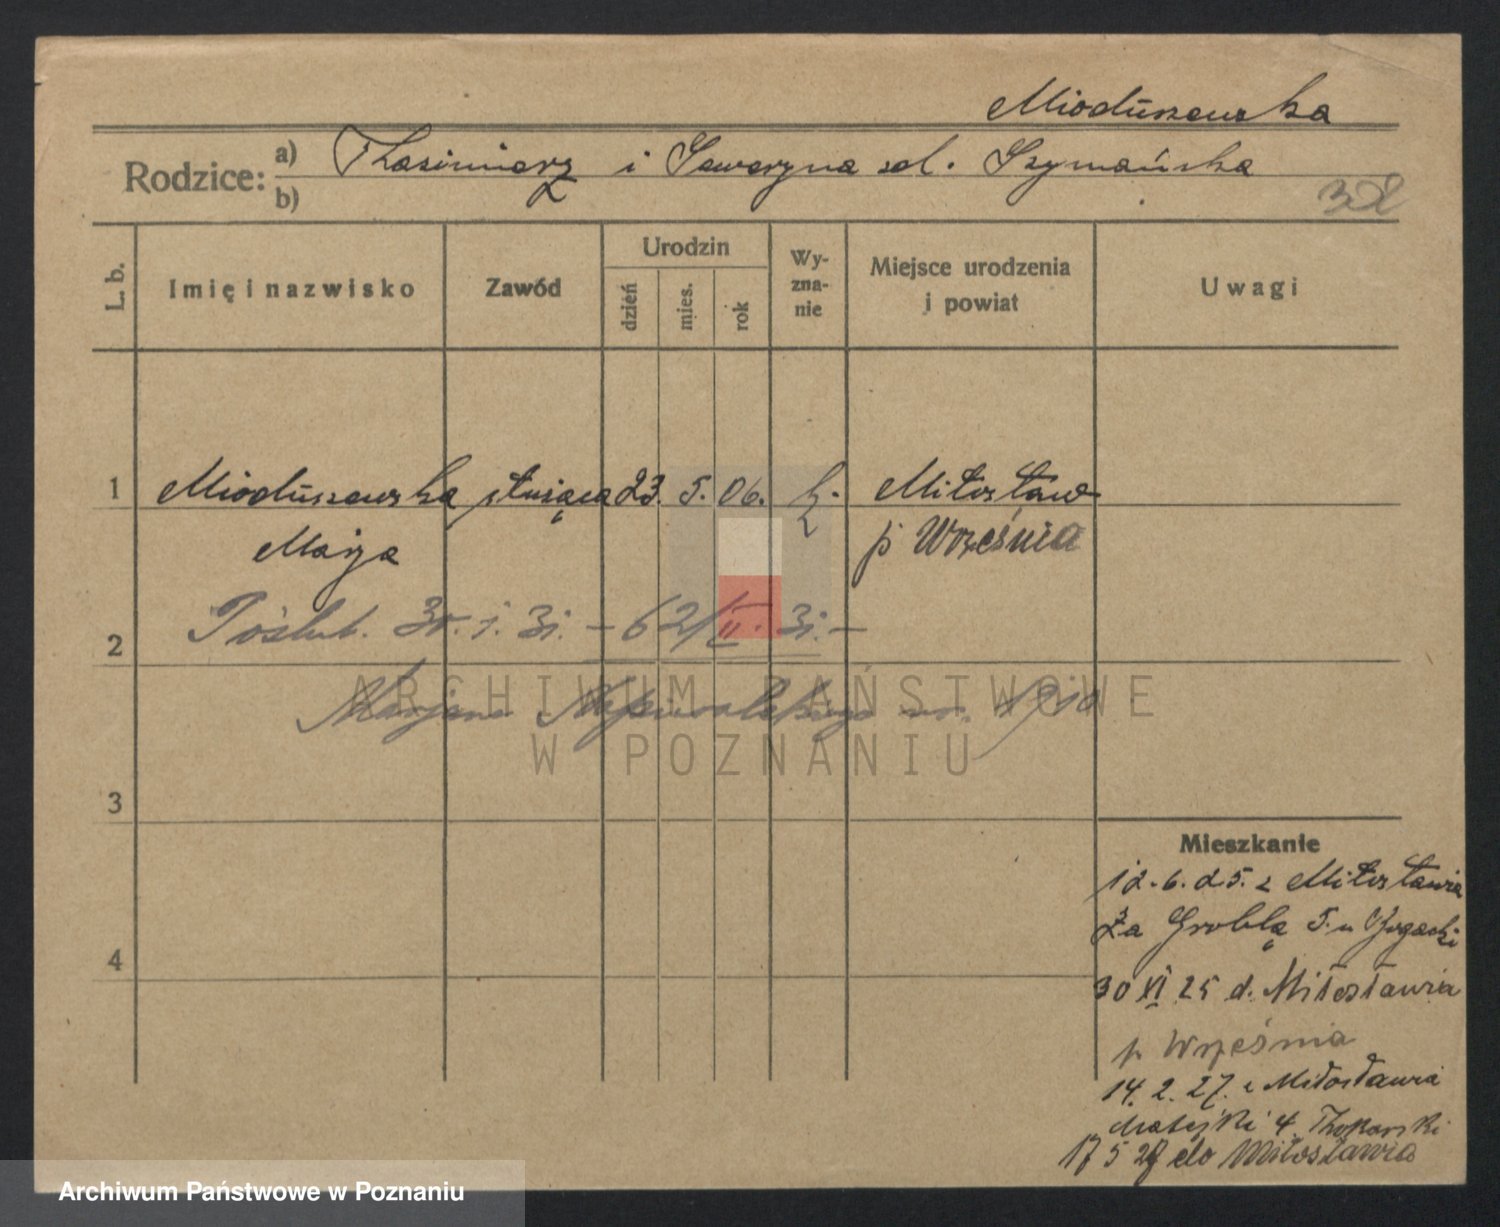 Mioduszewska
Rodzice: a) Kazimierz i Seweryna z d. Szymańska
b)
L. b.
Imię i nazwisko
Zawód
Urodzin
dzień
mies.
rok
Wy-
zna-
nie
Miejsce urodzenia
i powiat
Uwagi
1 Mioduszewska służąca 23. 5. 06. k. Miłosław
Marja p. Września
Poślub. 31. – 62/II. 31. –
2
Marjana ur. 1910
3
Mieszkanie
12. 6. 25. z Miłosławia
Za Groblą 5. u
4
30 XI 25 d. Miłosławia
p. Września
14. 2. 27. z Miłosławia
Matejki 4.
17 5 do Miłosławia
ARCHIWUM PAŃSTWOWE
W POZNANIU
Archiwum Państwowe w Poznaniu